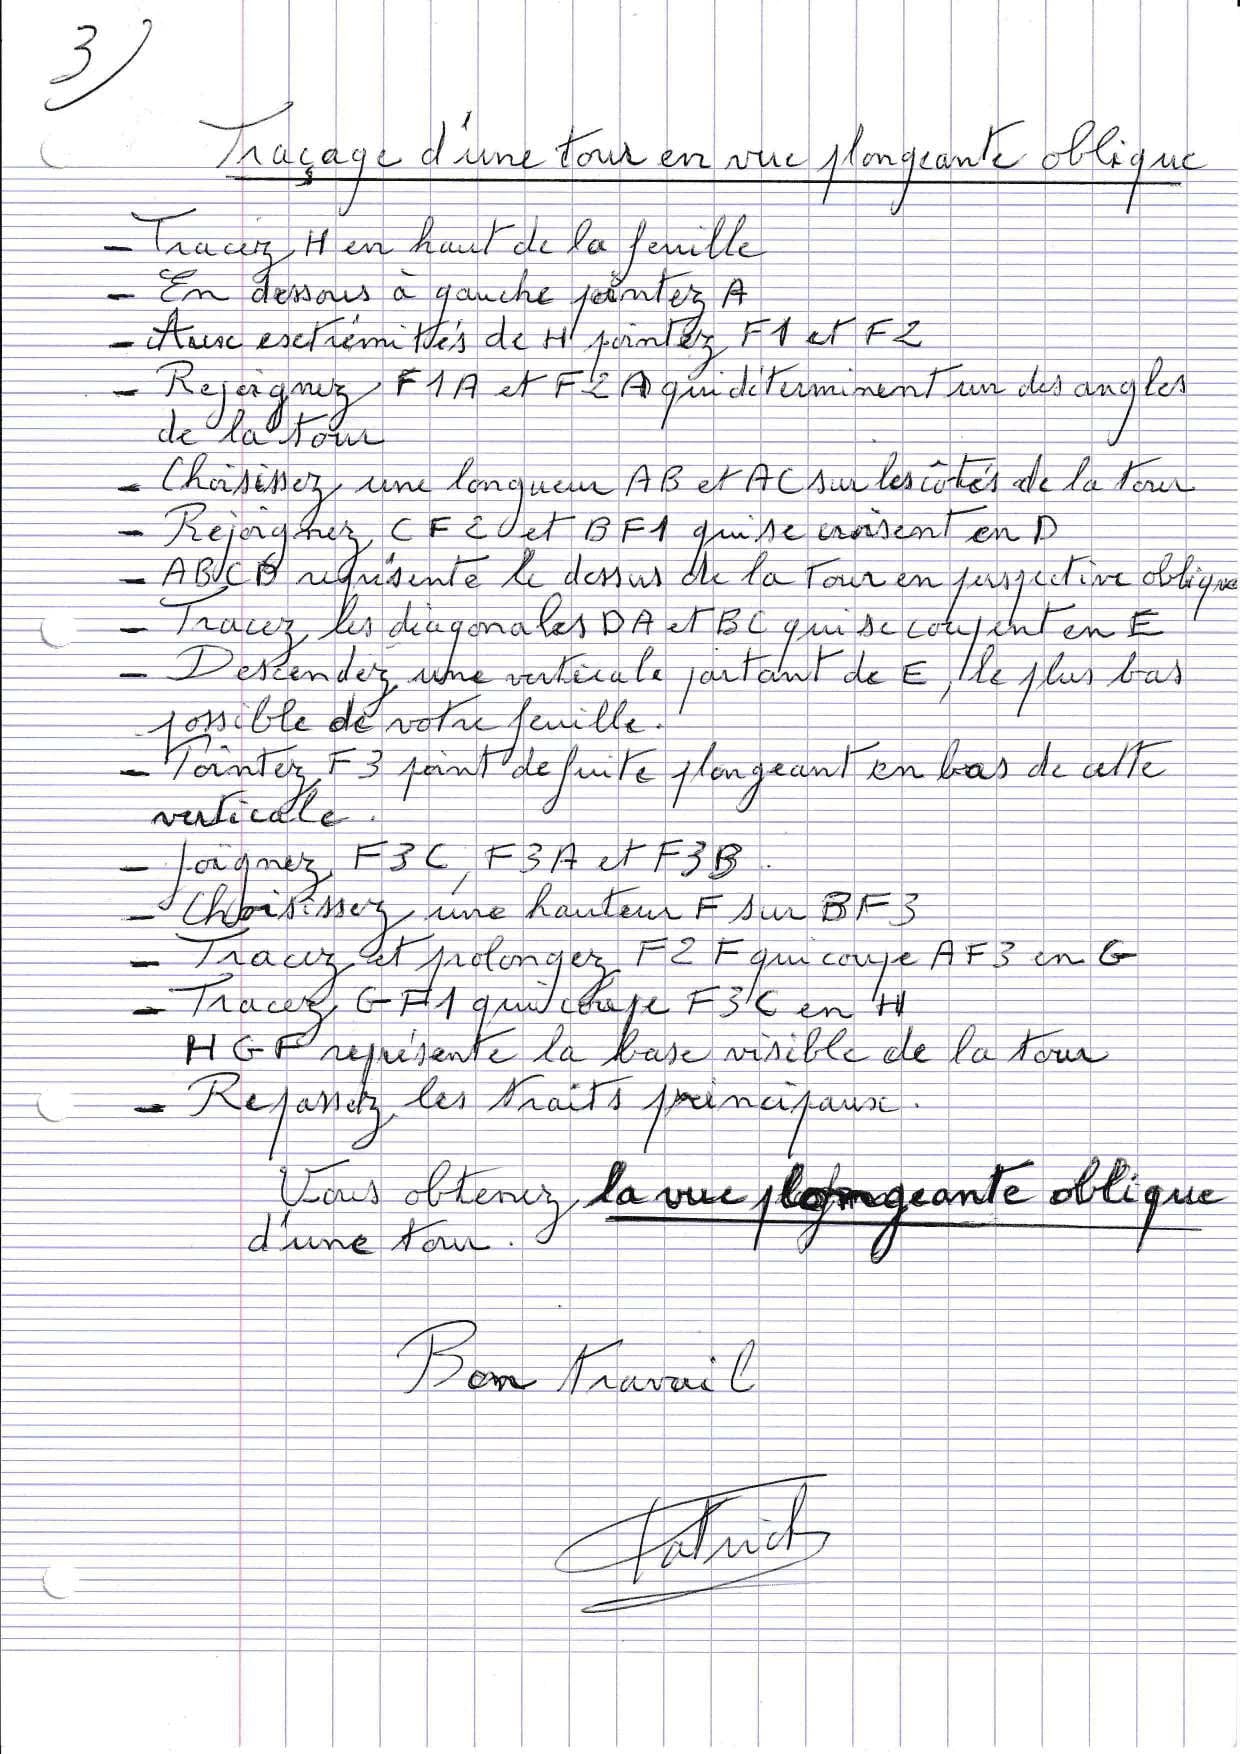 3)
Traçage d'une tour en vue plongeante oblique
- Tracez H en haut de la feuille
- En dessous à gauche pointez A
- Aux extrémittés de H pointez F1 et F2
- Rejoignez F1A et F2A qui déterminent un des angles
de la tour
- Choisissez une longueur AB et AC sur les côtés de la tour
- Rejoignez CF2 et BF1 qui se croisent en D
- ABCD représente le dessus de la tour en perspective oblique
- Tracez les diagonales DA et BC qui se coupent en E
- Descendez une verticale partant de E, le plus bas
possible de votre feuille.
- Pointez F3 point de fuite plongeant en bas de cette
verticale.
- Joignez F3C, F3A et F3B.
- Choisissez une hauteur F sur BF3
- Tracez et prolongez F2F qui coupe AF3 en G
- Tracez GF1 qui coupe F3C en H
HGF représente la base visible de la tour
- Repassez les traits principaux.
Vous obtenez la vue plongeante oblique
d'une tour.
Bon travail
Patrick